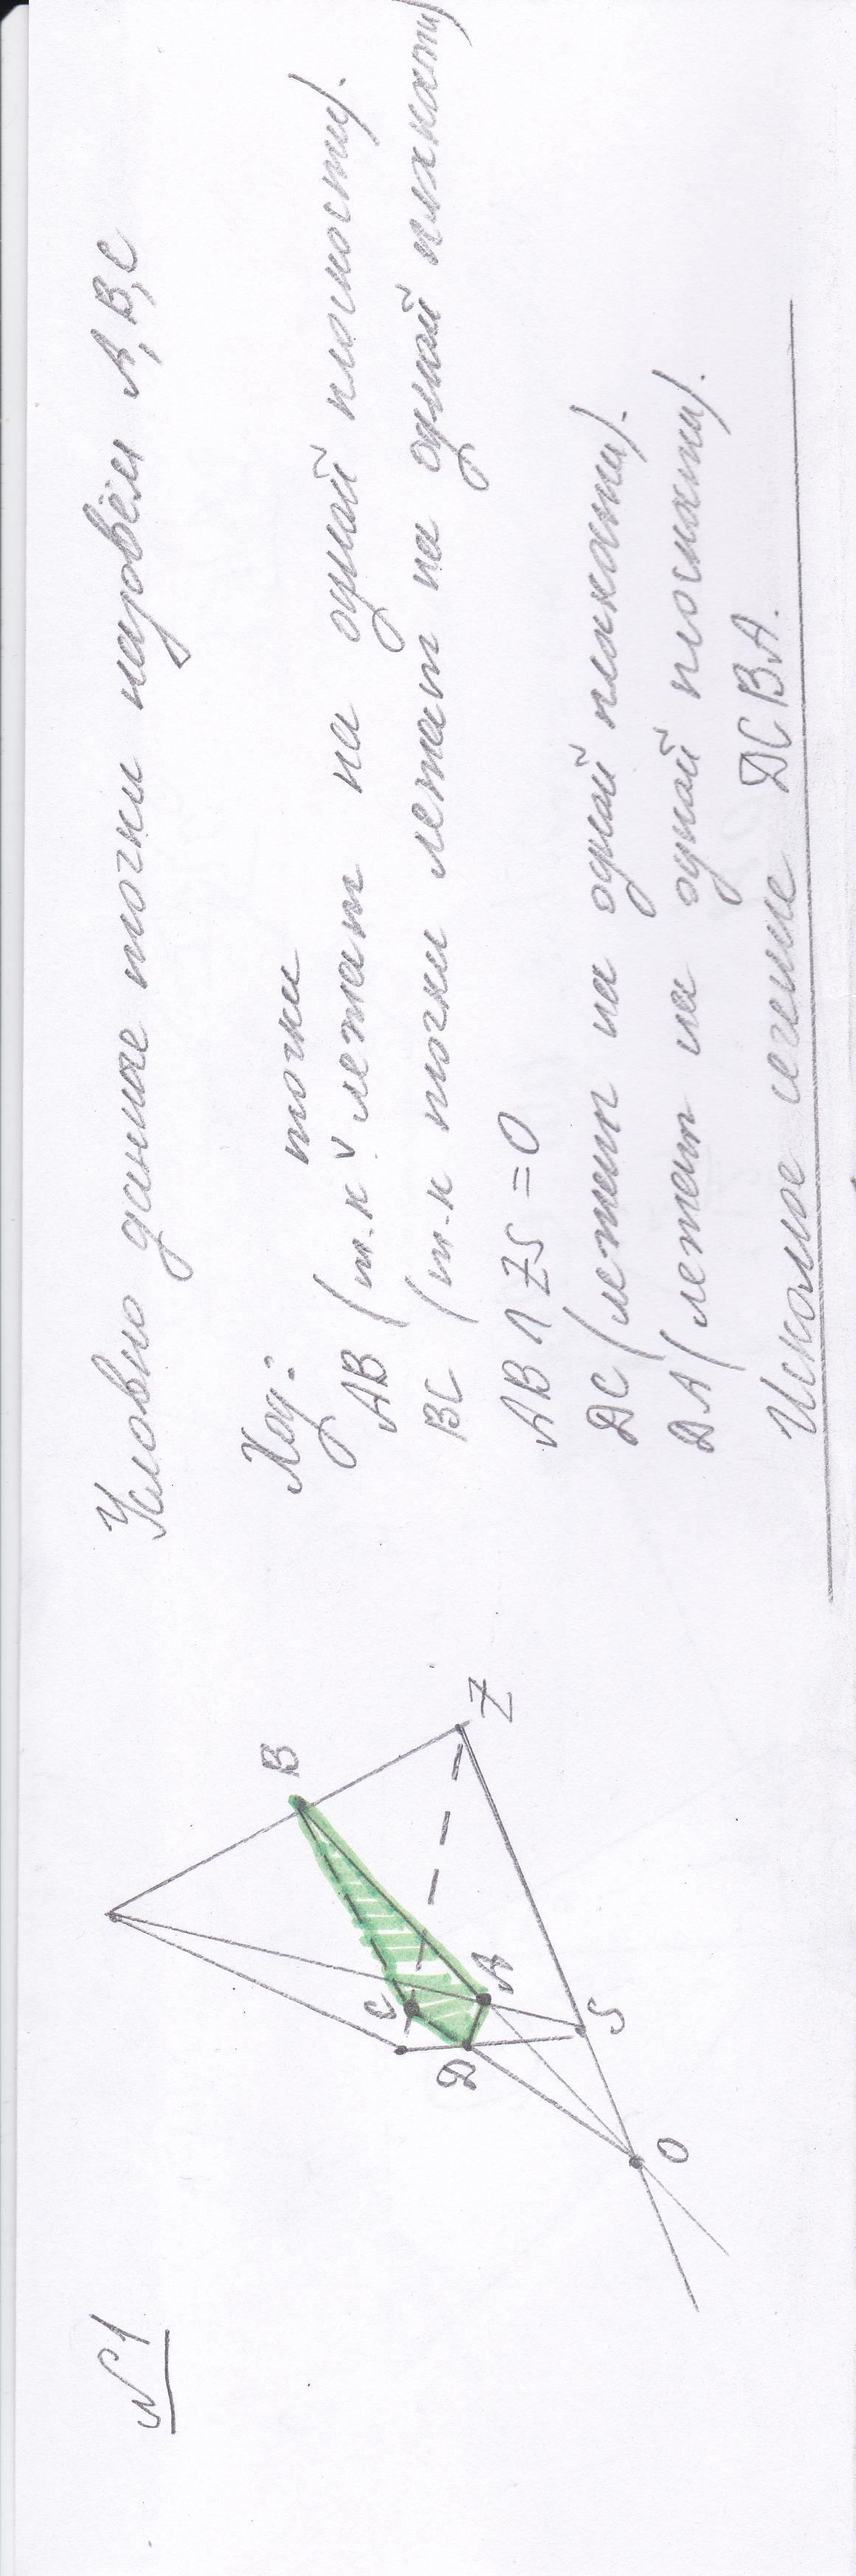 №1
Условно данные точки назовём А, В, С
Ход:
точки
АВ (т.к. ᵛ лежат на одной плоскости).
ВС (т.к точки лежат на одной плоскости)
АВ ∩ ZS = O
DC (лежат на одной плоскости).
DA (лежат на одной плоскости).
Искомое сечение DCBA.
B
Z
C
A
D
S
O